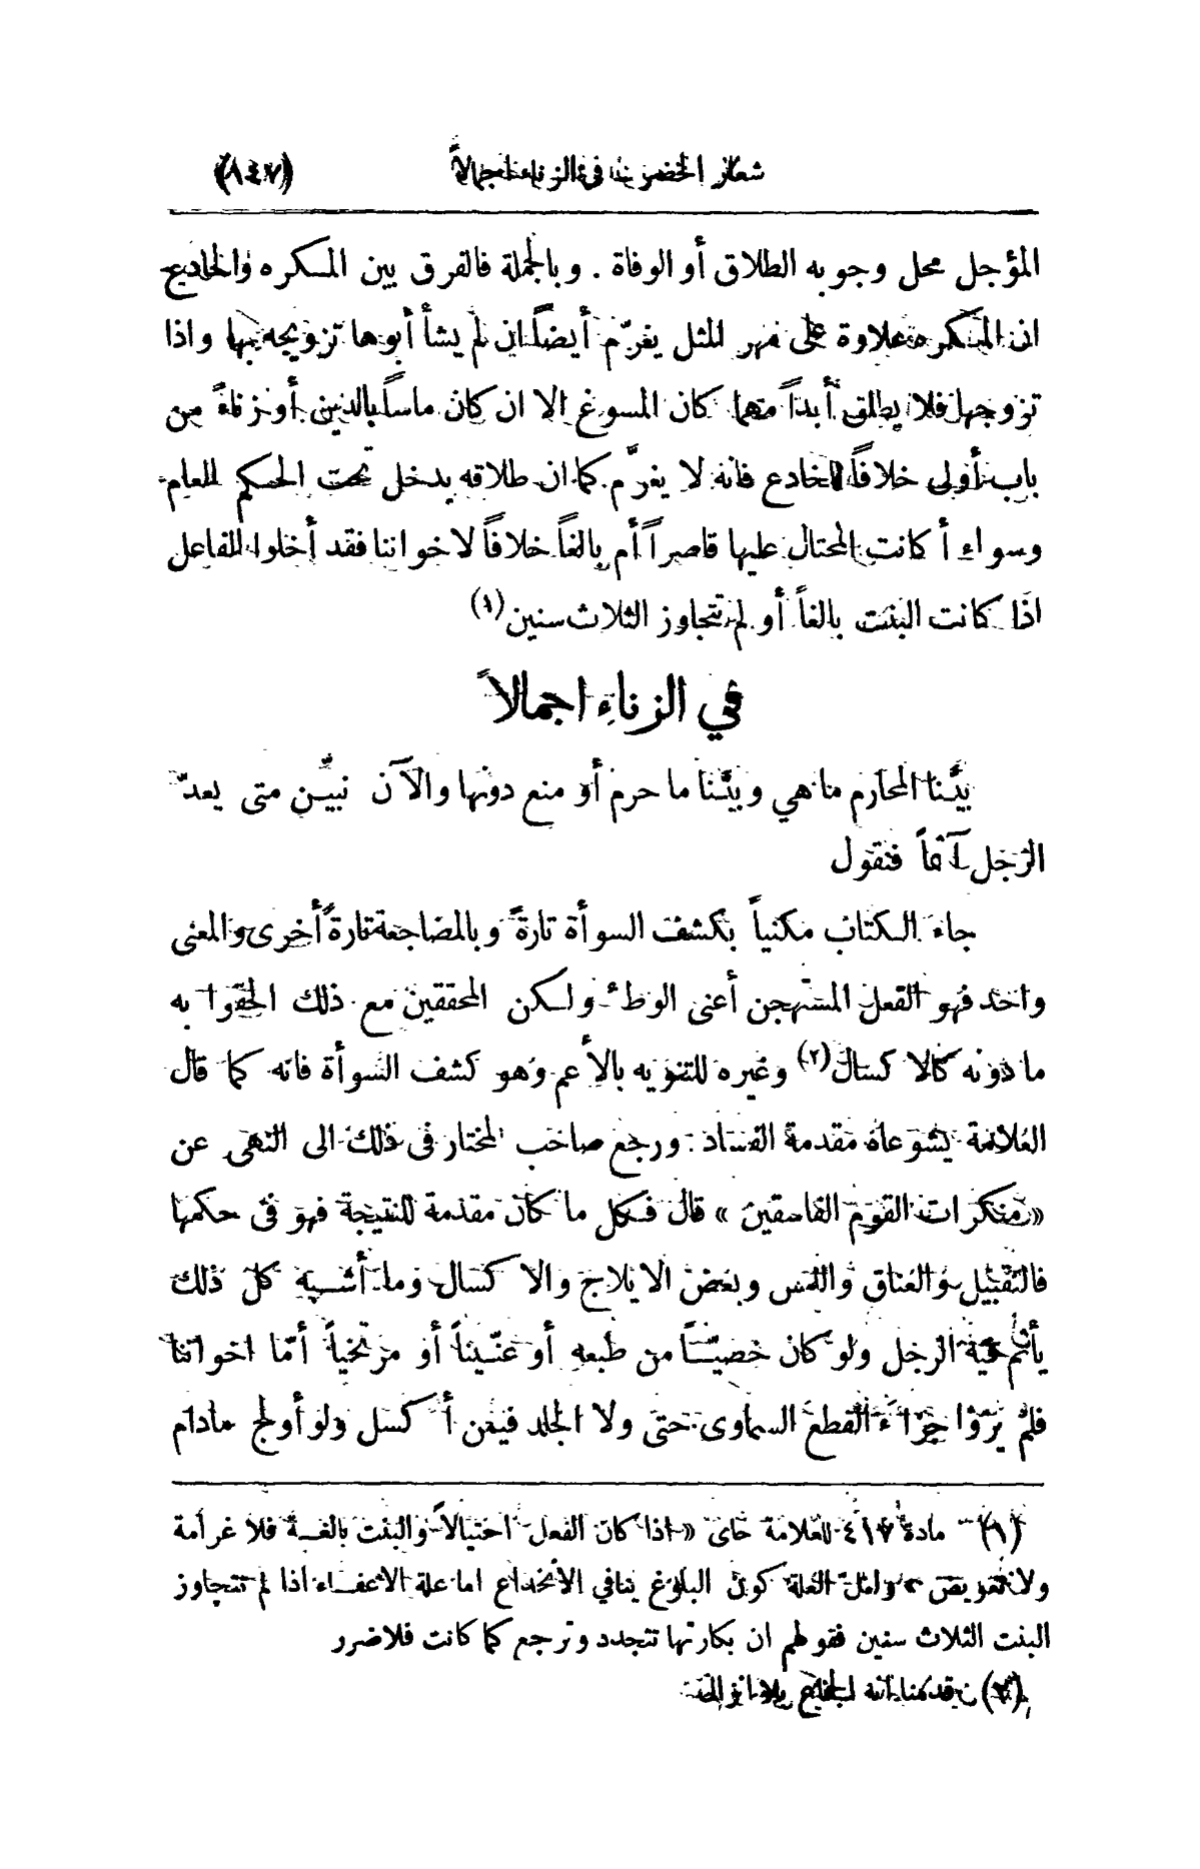 شعار الخضر في الزناء اجمالاً (٨٤٧)
المؤجل محل وجوبه الطلاق أو الوفاة . وبالجملة فالفرق بين المكره والخادع
ان المكره علاوة على مهر المثل يغرّم أيضاً ان لم يشأ أبوها تزويجه بها واذا
تزوجها فلا يطلق أبداً مهما كان المسوغ الا ان كان ماساً بالدين أو زناءً من
باب أولى خلافاً للخادع فانه لا يغرّم كما ان طلاقه يدخل تحت الحكم العام
وسواء أكانت المحتال عليها قاصراً أم بالغاً خلافاً لاخواننا فقد أخلوا الفاعل
اذا كانت البنت بالغاً أو لم تتجاوز الثلاث سنين (١)
في الزناء اجمالاً
بيَّنا المحارم ما هي وبيَّنا ما حرم أو منع دونها والآن نبيِّن متى يعدّ
الرجل آثماً فنقول
جاء الكتاب مكنياً بكشف السوأة تارةً وبالمضاجعة تارةً أخرى والمعنى
واحد فهو الفعل المستهجن أعنى الوطء ولكن المحققين مع ذلك الحقوا به
ما دونه كالاكسال (٢) وغيره للتنويه بالأعم وهو كشف السوأة فانه كما قال
العلامة يشوعاه مقدمة الفساد . ورجع صاحب المختار فى ذلك الى النهى عن
«منكرات القوم الفاسقين» قال فكل ما كان مقدمة للنتيجة فهو فى حكمها
فالتقبيل والعناق واللمس وبعض الايلاج والاكسال وما أشبه كل ذلك
يأثم فيه الرجل ولو كان خصيّاً من طبعه أو عنّيناً أو مرتخياً أمّا اخواننا
فلم يروا جزاء القطع السماوى حتى ولا الجلد فيمن أكسل ولو أولج مادام
(١) مادة ٤١٧ للعلامة حاى «اذا كان الفعل احتيالاً والبنت بالغة فلا غرامة
ولا تعويض» ولعل العلة كون البلوغ ينافي الانخداع اما علة الاعفاء اذا لم تتجاوز
البنت الثلاث سنين فقولهم ان بكارتها تتجدد وترجع كما كانت فلا ضرر
(٢) قدمنا انه